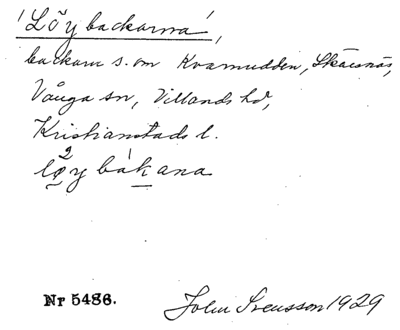 'Löybackarna',
backarn s. om Kvarnudden, Skärsnäs,
Vånga sn, Villands hd,
Kristianstads l.
lǫ²y bàḵana
Nr 5486.
John Svensson 1929